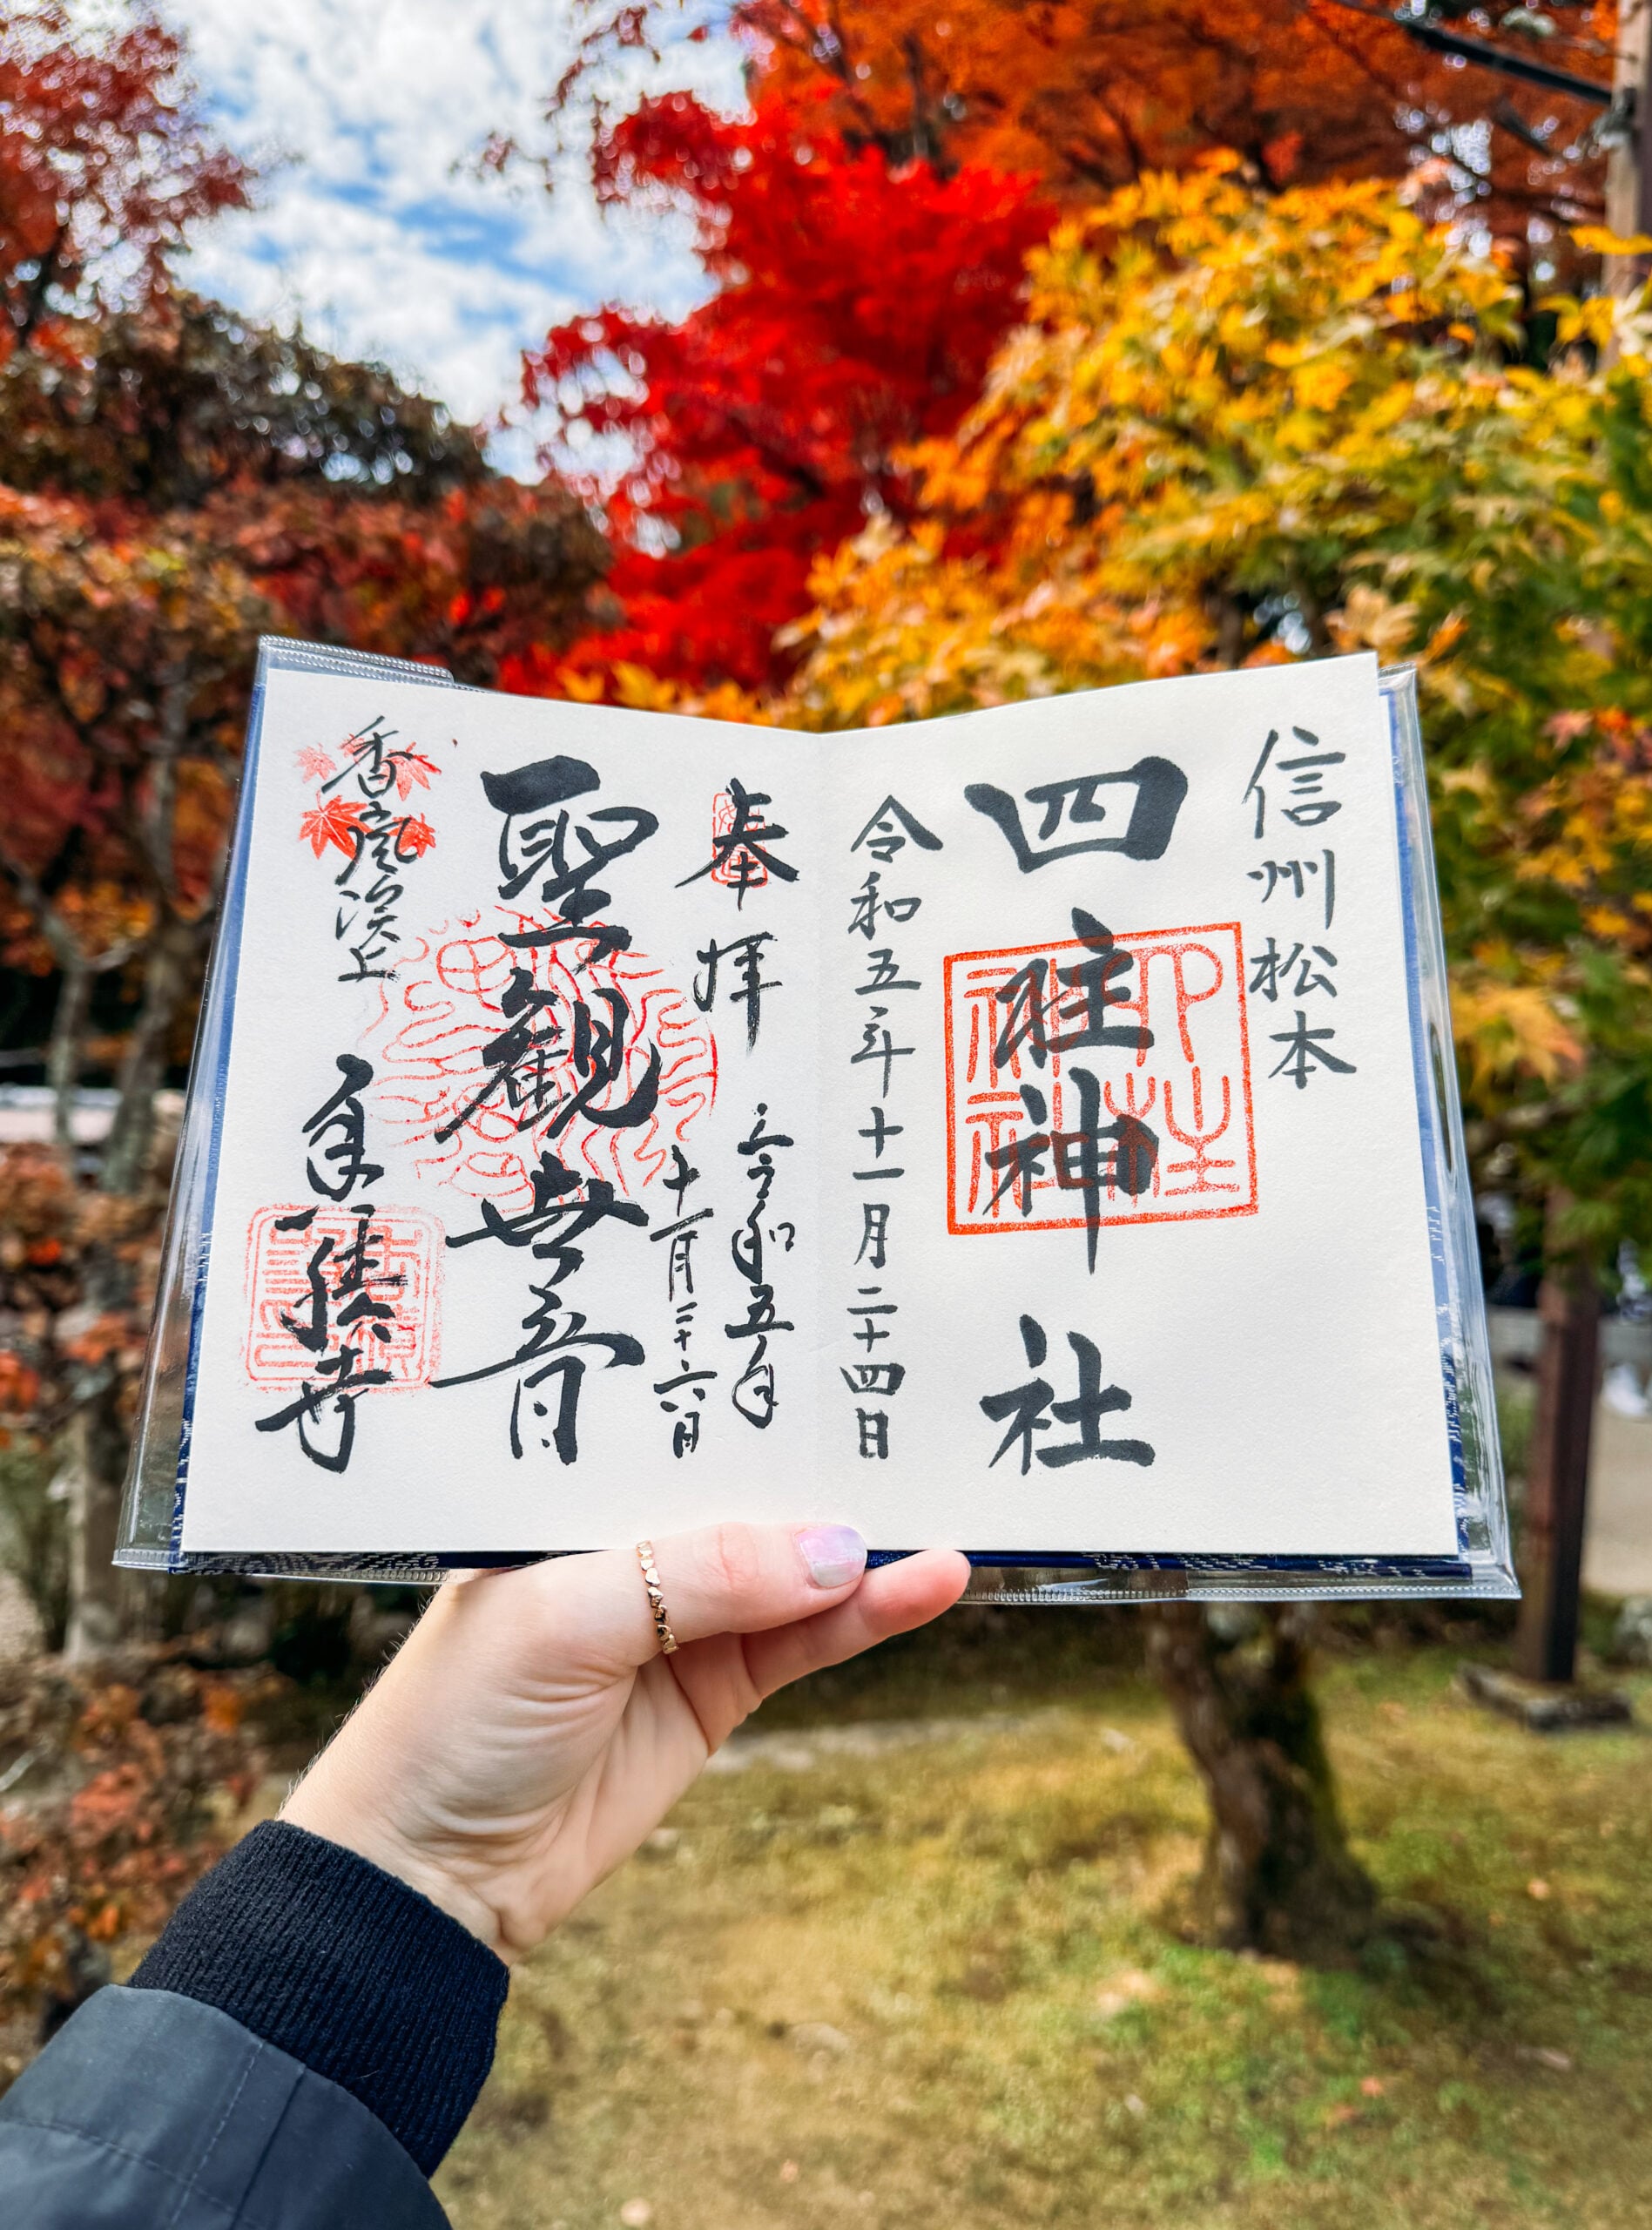 信州松本
四柱神社
四柱
神社
令和五年十一月二十四日
奉拝
令和五年
十一月二十六日
聖観世音
香嵐渓上
香積寺